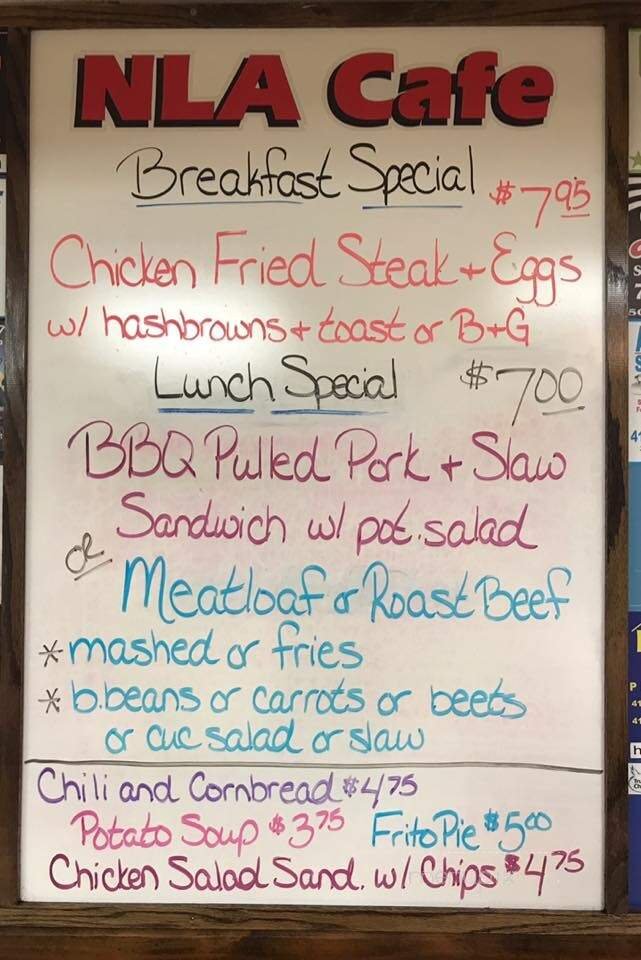 NLA Cafe
Breakfast Special $7.95
Chicken Fried Steak + Eggs
w/ hashbrowns + toast or B+G
Lunch Special $7.00
BBQ Pulled Pork + Slaw
Sandwich w/ pot. salad
or
Meatloaf or Roast Beef
* mashed or fries
* b.beans or carrots or beets
or cuc salad or slaw
Chili and Cornbread $4.75
Potato Soup $3.75 Frito Pie $5.00
Chicken Salad Sand. w/ Chips $4.75